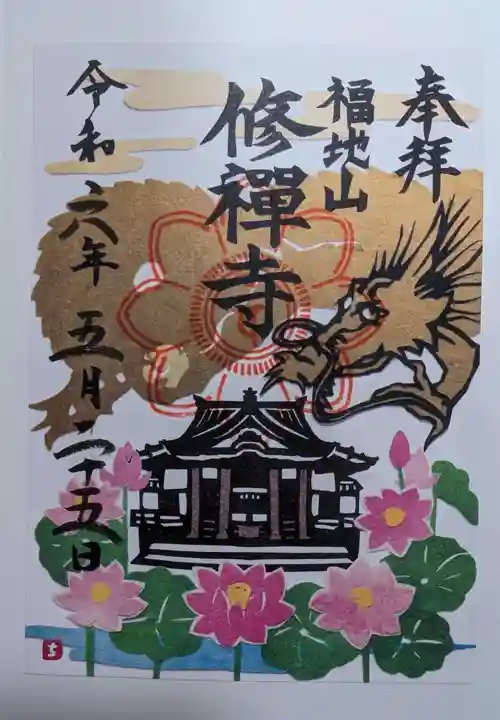 奉拝
福地山
修禪寺
令和六年五月二十五日
ち